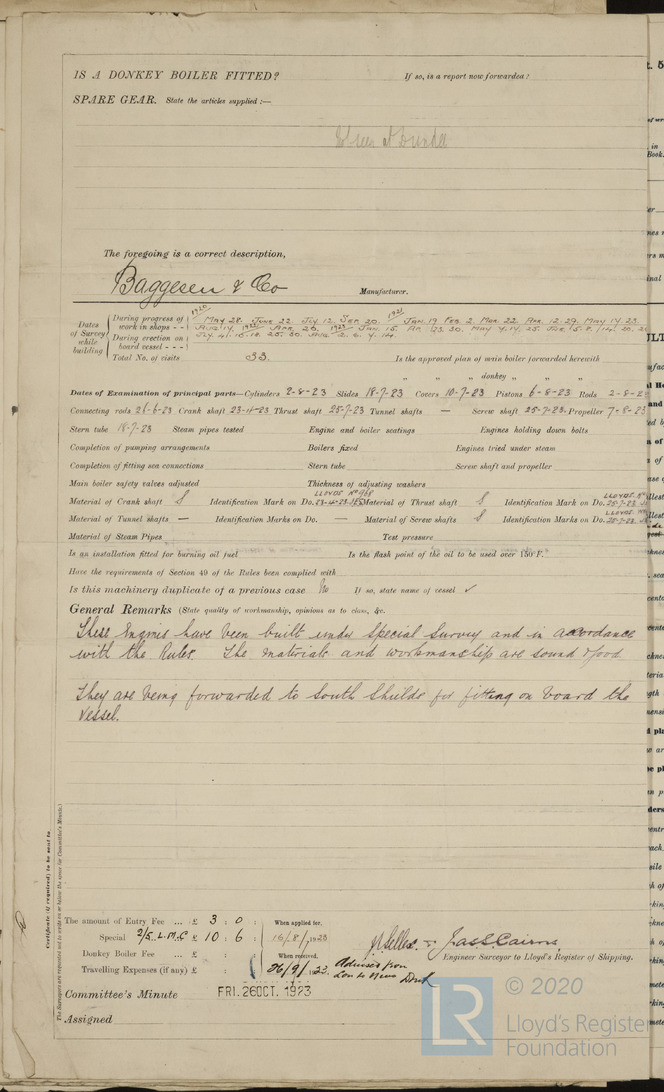 IS A DONKEY BOILER FITTED? If so, is a report now forwarded?
SPARE GEAR. State the articles supplied :—
The foregoing is a correct description,
Baggesen & Co Manufacturer.
Dates of Survey while building
During progress of work in shops - -
1920 May 28. June 22. Jly. 12. Sep. 20. 1921 Jan. 19. Feb. 2. Mar. 22. Apr. 12. 29. May 14. 23.
During erection on board vessel - - -
Total No. of visits 33.
Is the approved plan of main boiler forwarded herewith
" " " donkey " " "
Dates of Examination of principal parts—Cylinders 2-8-23 Slides 18-7-23 Covers 10-7-23 Pistons 6-8-23 Rods 2-8-23
Connecting rods 26-6-23 Crank shaft 23-4-23 Thrust shaft 25-7-23 Tunnel shafts — Screw shaft 25-7-23 Propeller 7-8-23
Stern tube 18-7-23 Steam pipes tested Engine and boiler seatings Engines holding down bolts
Completion of pumping arrangements Boilers fixed Engines tried under steam
Completion of fitting sea connections Stern tube Screw shaft and propeller
Main boiler safety valves adjusted Thickness of adjusting washers
Material of Crank shaft S Identification Mark on Do. LLOYDS No 23-4-23 Material of Thrust shaft S Identification Mark on Do. LLOYDS. 25-7-23
Material of Tunnel shafts — Identification Marks on Do. — Material of Screw shafts S Identification Marks on Do. LLOYDS. 25-7-23
Material of Steam Pipes Test pressure
Is an installation fitted for burning oil fuel Is the flash point of the oil to be used over 150°F.
Have the requirements of Section 49 of the Rules been complied with
Is this machinery duplicate of a previous case No If so, state name of vessel ✓
General Remarks (State quality of workmanship, opinions as to class, &c.
These Engines have been built under Special Survey and in accordance
with the Rules. The materials and workmanship are sound & good
They are being forwarded to South Shields for fitting on board the
vessel.
Certificate (if required) to be sent to
The Surveyors are requested not to write on or below the space for Committee's Minute.
The amount of Entry Fee ... £ 3 : 0 :
Special 2/5 L.M.C £ 10 : 6 :
Donkey Boiler Fee ... £ : :
Travelling Expenses (if any) £ : :
When applied for,
16/8/1923
When received,
26/9/1923.
Engineer Surveyor to Lloyd's Register of Shipping.
Committee's Minute FRI. 26 OCT. 1923
Assigned
© 2020
LR
Lloyd's Register
Foundation